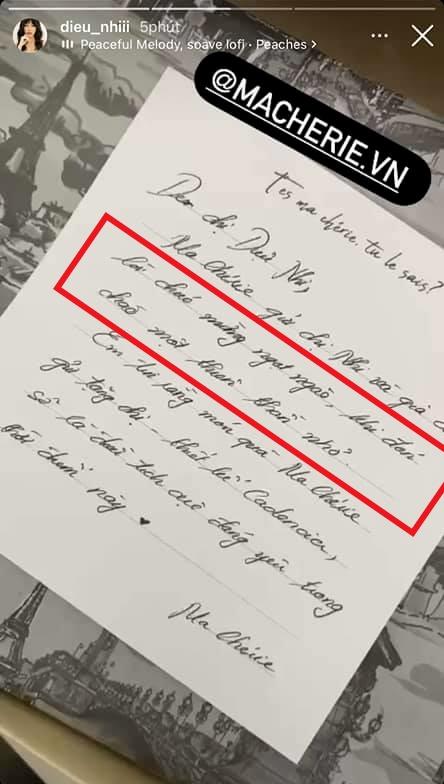 dieu_nhiii 5phút
Peaceful Melody, soave lofi · Peaches >
@MACHERIE.VN
T'es ma chérie, tu le sais?
Dear chị Diệu Nhi,
Ma Chérie gửi chị Nhi và gia
lời chúc mừng ngọt ngào, khi đón
chào một thiên thần nhỏ.
Em tin rằng món quà Ma Chérie
gửi tặng chị, thiết kế Cadencia,
sẽ là dấu tích cực đáng yêu trong
thời điểm này ♥
Ma Chérie